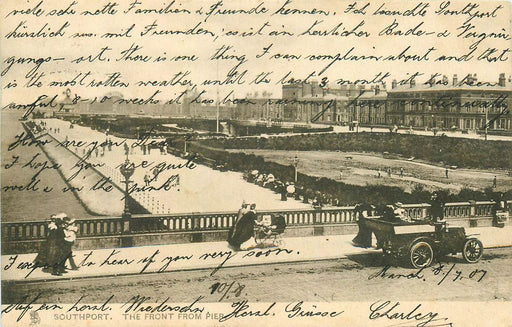 viele sehr nette Familien & Freunde kennen. Ich besuchte Southport
kürzlich aus. mit Freunden; es ist ein herlicher Bade- & Vergnü-
gungs- ort. There is one thing I can complain about and that
is the most rotten weather, until the last 3 month it has been
awful, 8-10 weeks it has been raining here continuously
How are you Dear
I hope you are quite
well & in the pink
I want to hear of you very soon.
March, 8/7.07
10/8
Auf ein horzl. Wiedersehn Herzl. Grüsse Charley
SOUTHPORT. THE FRONT FROM PIER